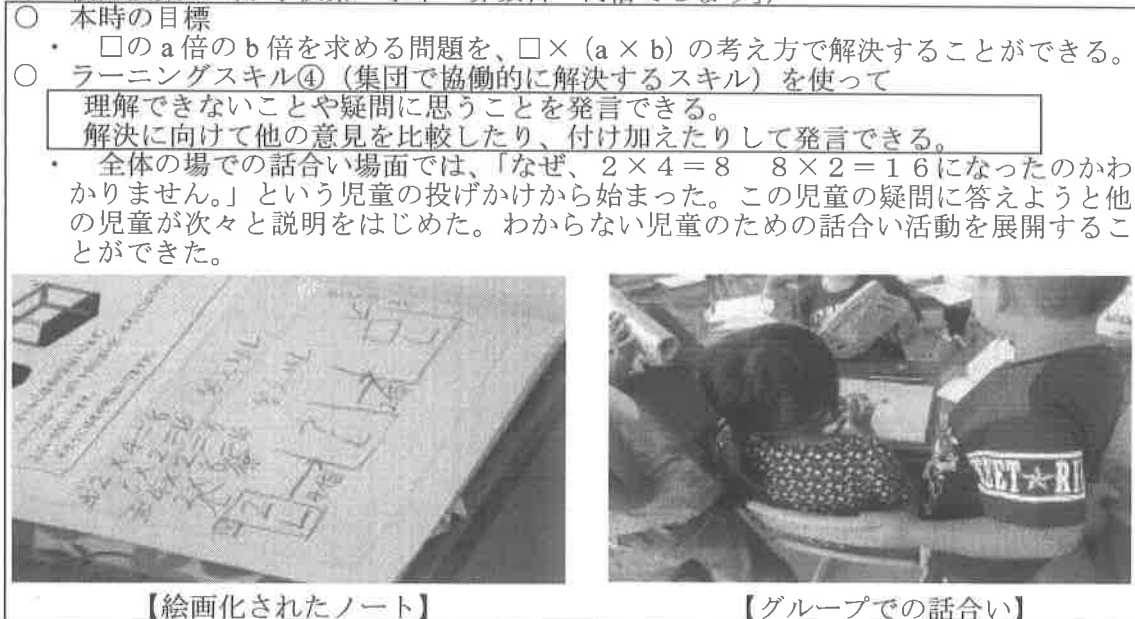 ○ 本時の目標
・ □のa倍のb倍を求める問題を、□×(a×b)の考え方で解決することができる。
○ ラーニングスキル④(集団で協働的に解決するスキル)を使って
理解できないことや疑問に思うことを発言できる。
解決に向けて他の意見を比較したり、付け加えたりして発言できる。
・ 全体の場での話合い場面では、「なぜ、2×4=8 8×2=16になったのかわ
かりません。」という児童の投げかけから始まった。この児童の疑問に答えようと他
の児童が次々と説明をはじめた。わからない児童のための話合い活動を展開するこ
とができた。
【絵画化されたノート】
【グループでの話合い】